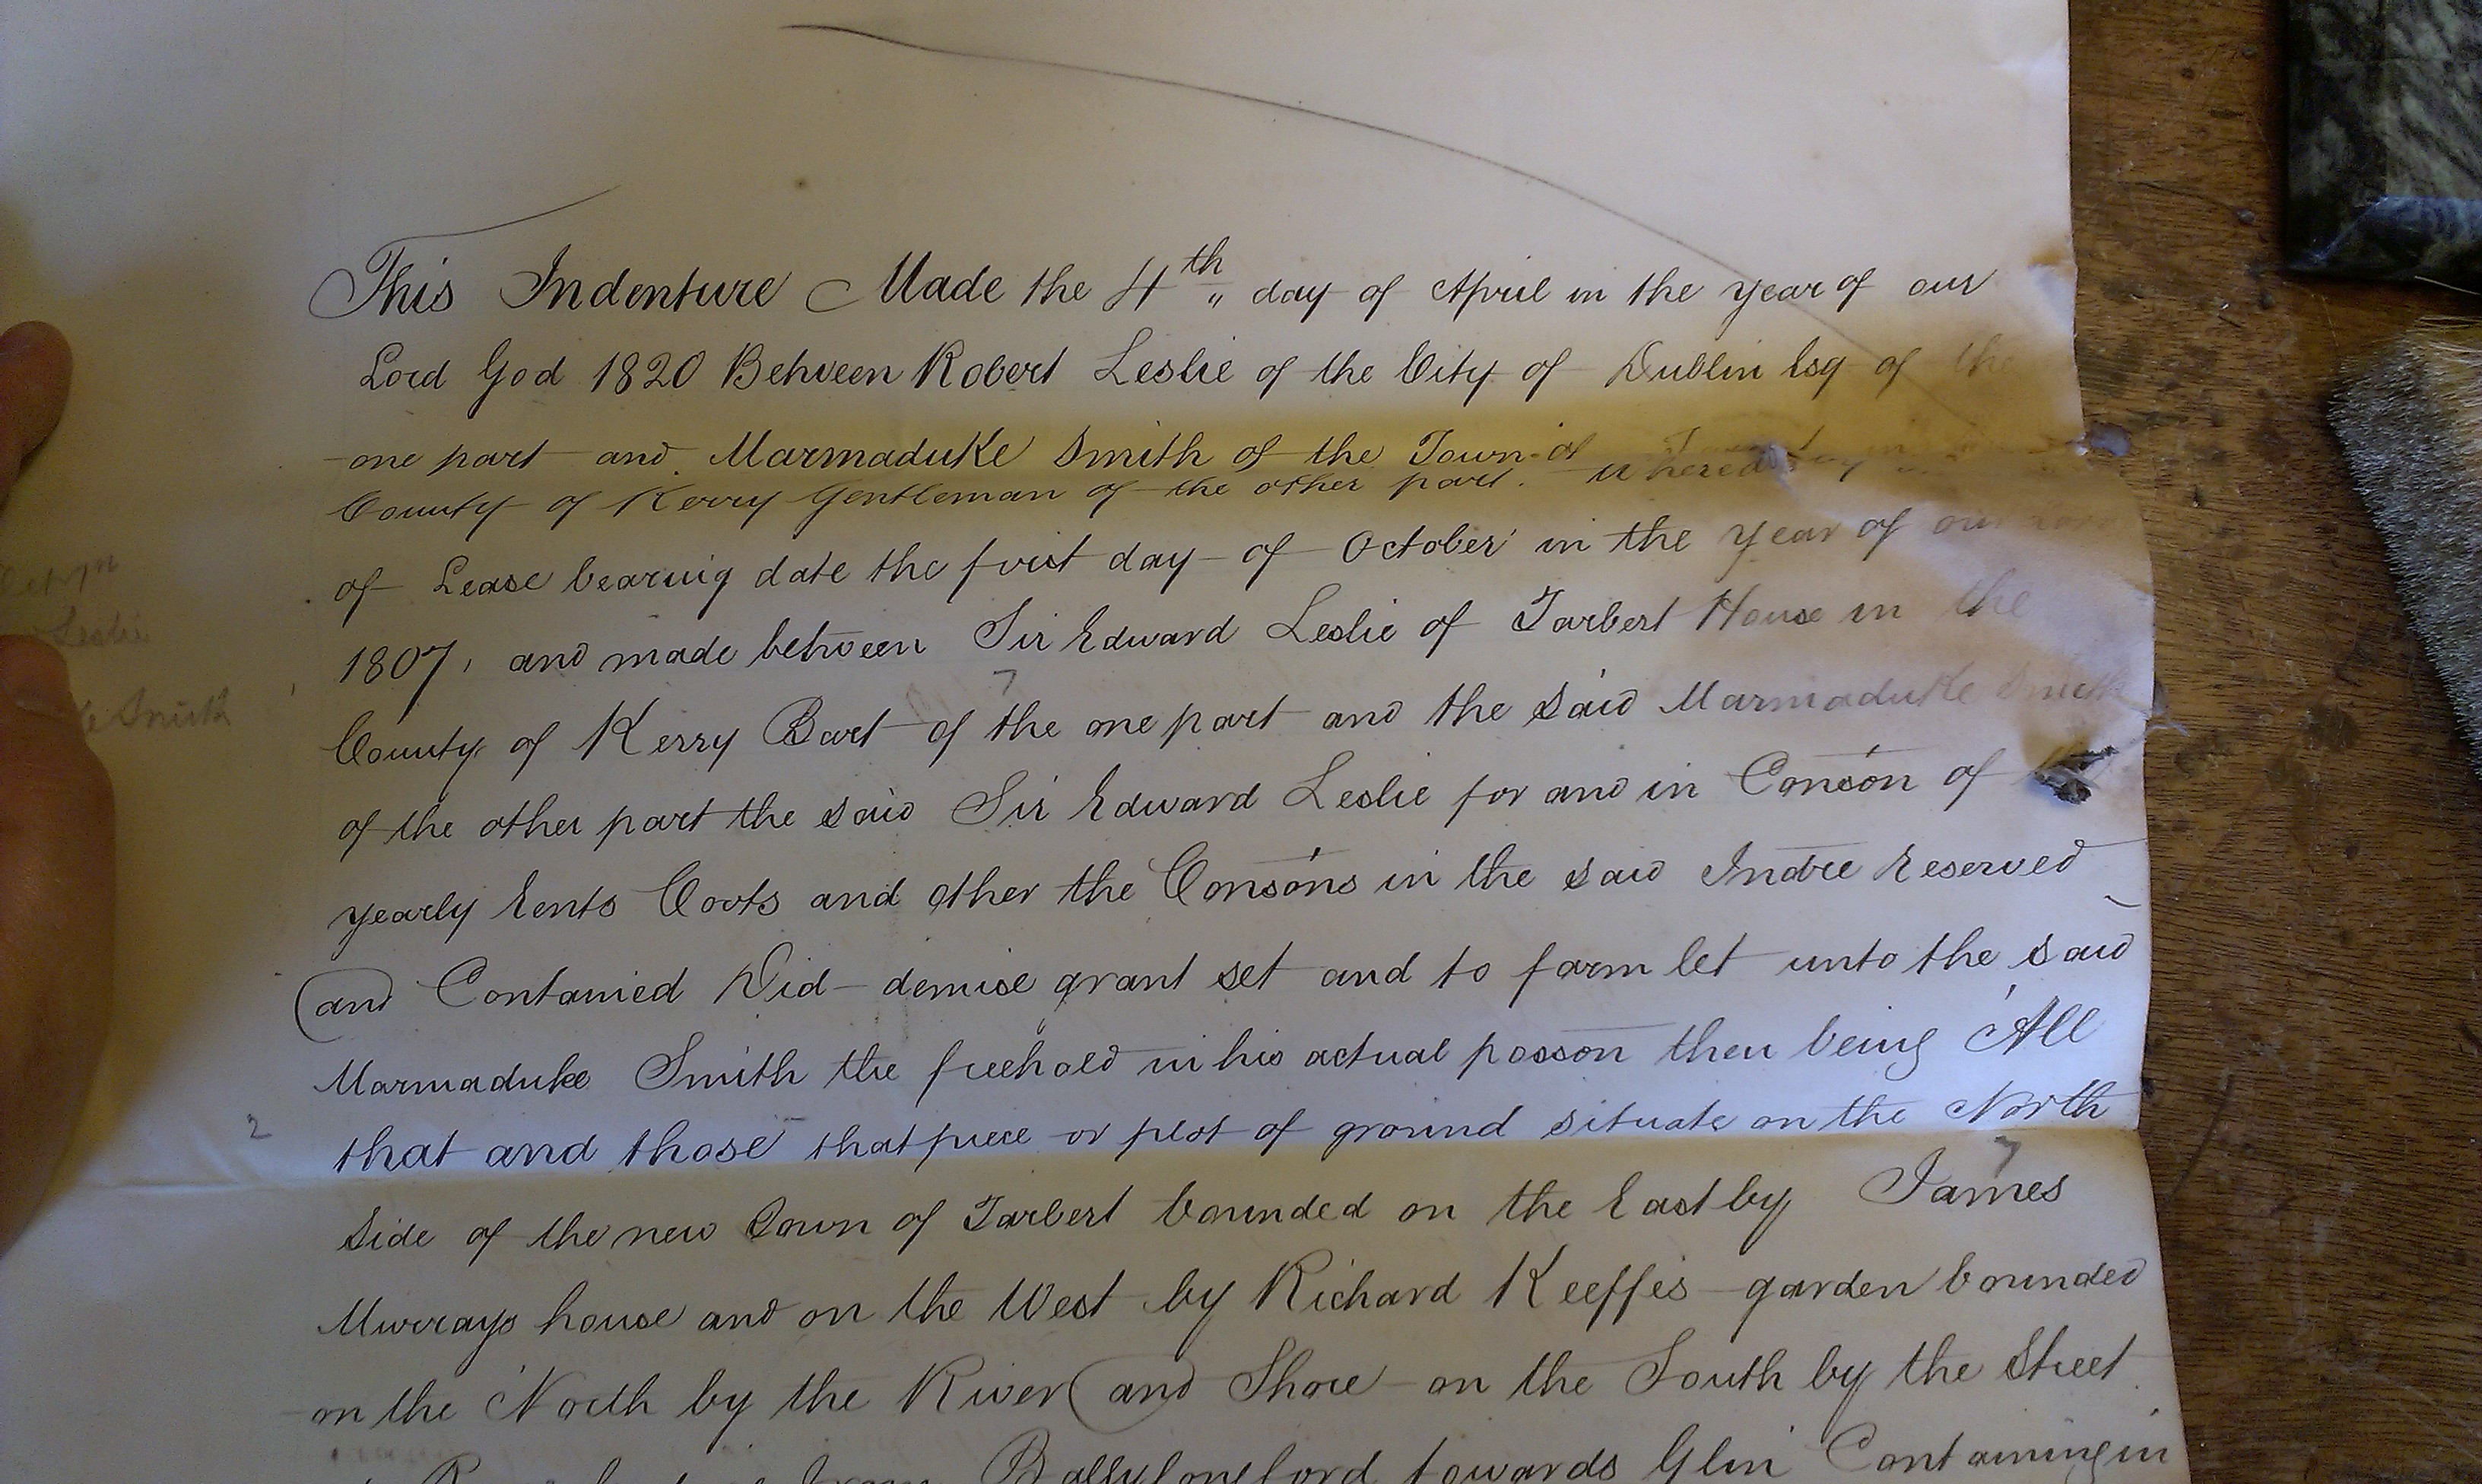 This Indenture Made the 4th day of April in the year of our
Lord God 1820 Between Robert Leslie of the City of Dublin Esq of the
one part and Marmaduke Smith of the Town of
County of Kerry Gentleman of the other part. Whereas by
of Lease bearing date the first day of October in the year of our
1807, and made between Sir Edward Leslie of Tarbert House in the
County of Kerry Bart of the one part and the said Marmaduke Smith
of the other part the said Sir Edward Leslie for and in Conson of
yearly Rents Covts and other the Consons in the said Indre Reserved
(and Contained Did demise grant set and to farm let unto the said
Marmaduke Smith the freehold in his actual posson then being All
2 that and those that piece or plot of ground situate on the North
Side of the new Town of Tarbert bounded on the East by James
Murrays house and on the West by Richard Keeffes garden bounded
on the North by the River (and Shore on the South by the Street
Ballylongford towards Glin Containing in
Leslie
Smith